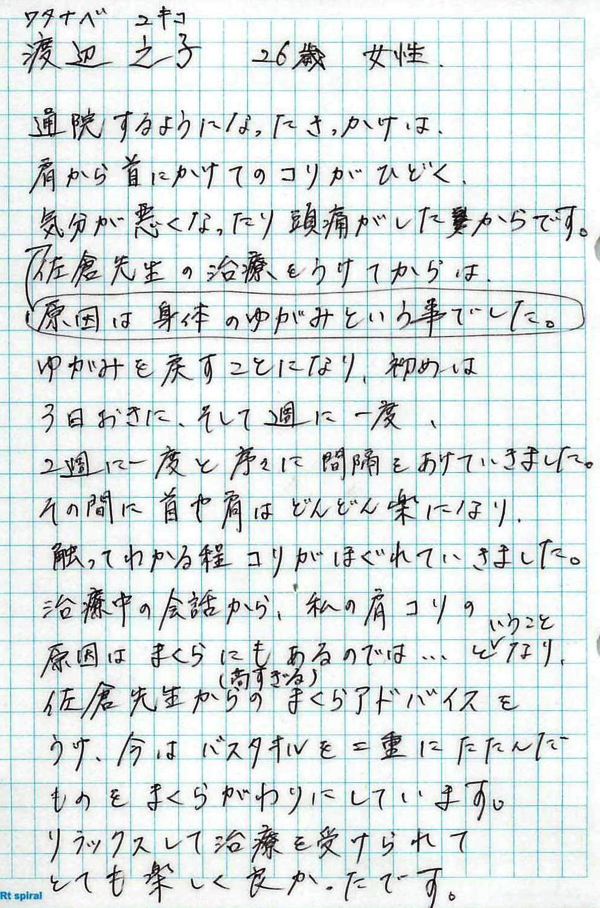 ワタナベ ユキコ
渡辺 之子 26歳 女性.
通院するようになったきっかけは、
肩から首にかけてのコリがひどく、
気分が悪くなったり頭痛がしたからです。
佐倉先生の治療をうけてからは、
原因は身体のゆがみという事でした。
ゆがみを戻すことになり、初めは
3日おきに、そして1週に一度、
2週に一度と序々に間隔をあけていきました。
その間に首や肩はどんどん楽になり、
触ってわかる程コリがほぐれていきました。
治療中の会話から、私の肩コリの
原因はまくらにもあるのでは…ということになり、
(高すぎる)
佐倉先生からのまくらアドバイスを
うけ、今はバスタオルを二重にたたんだ
ものをまくらがわりにしています。
リラックスして治療を受けられて
とても楽しく良かったです。
Rt spiral